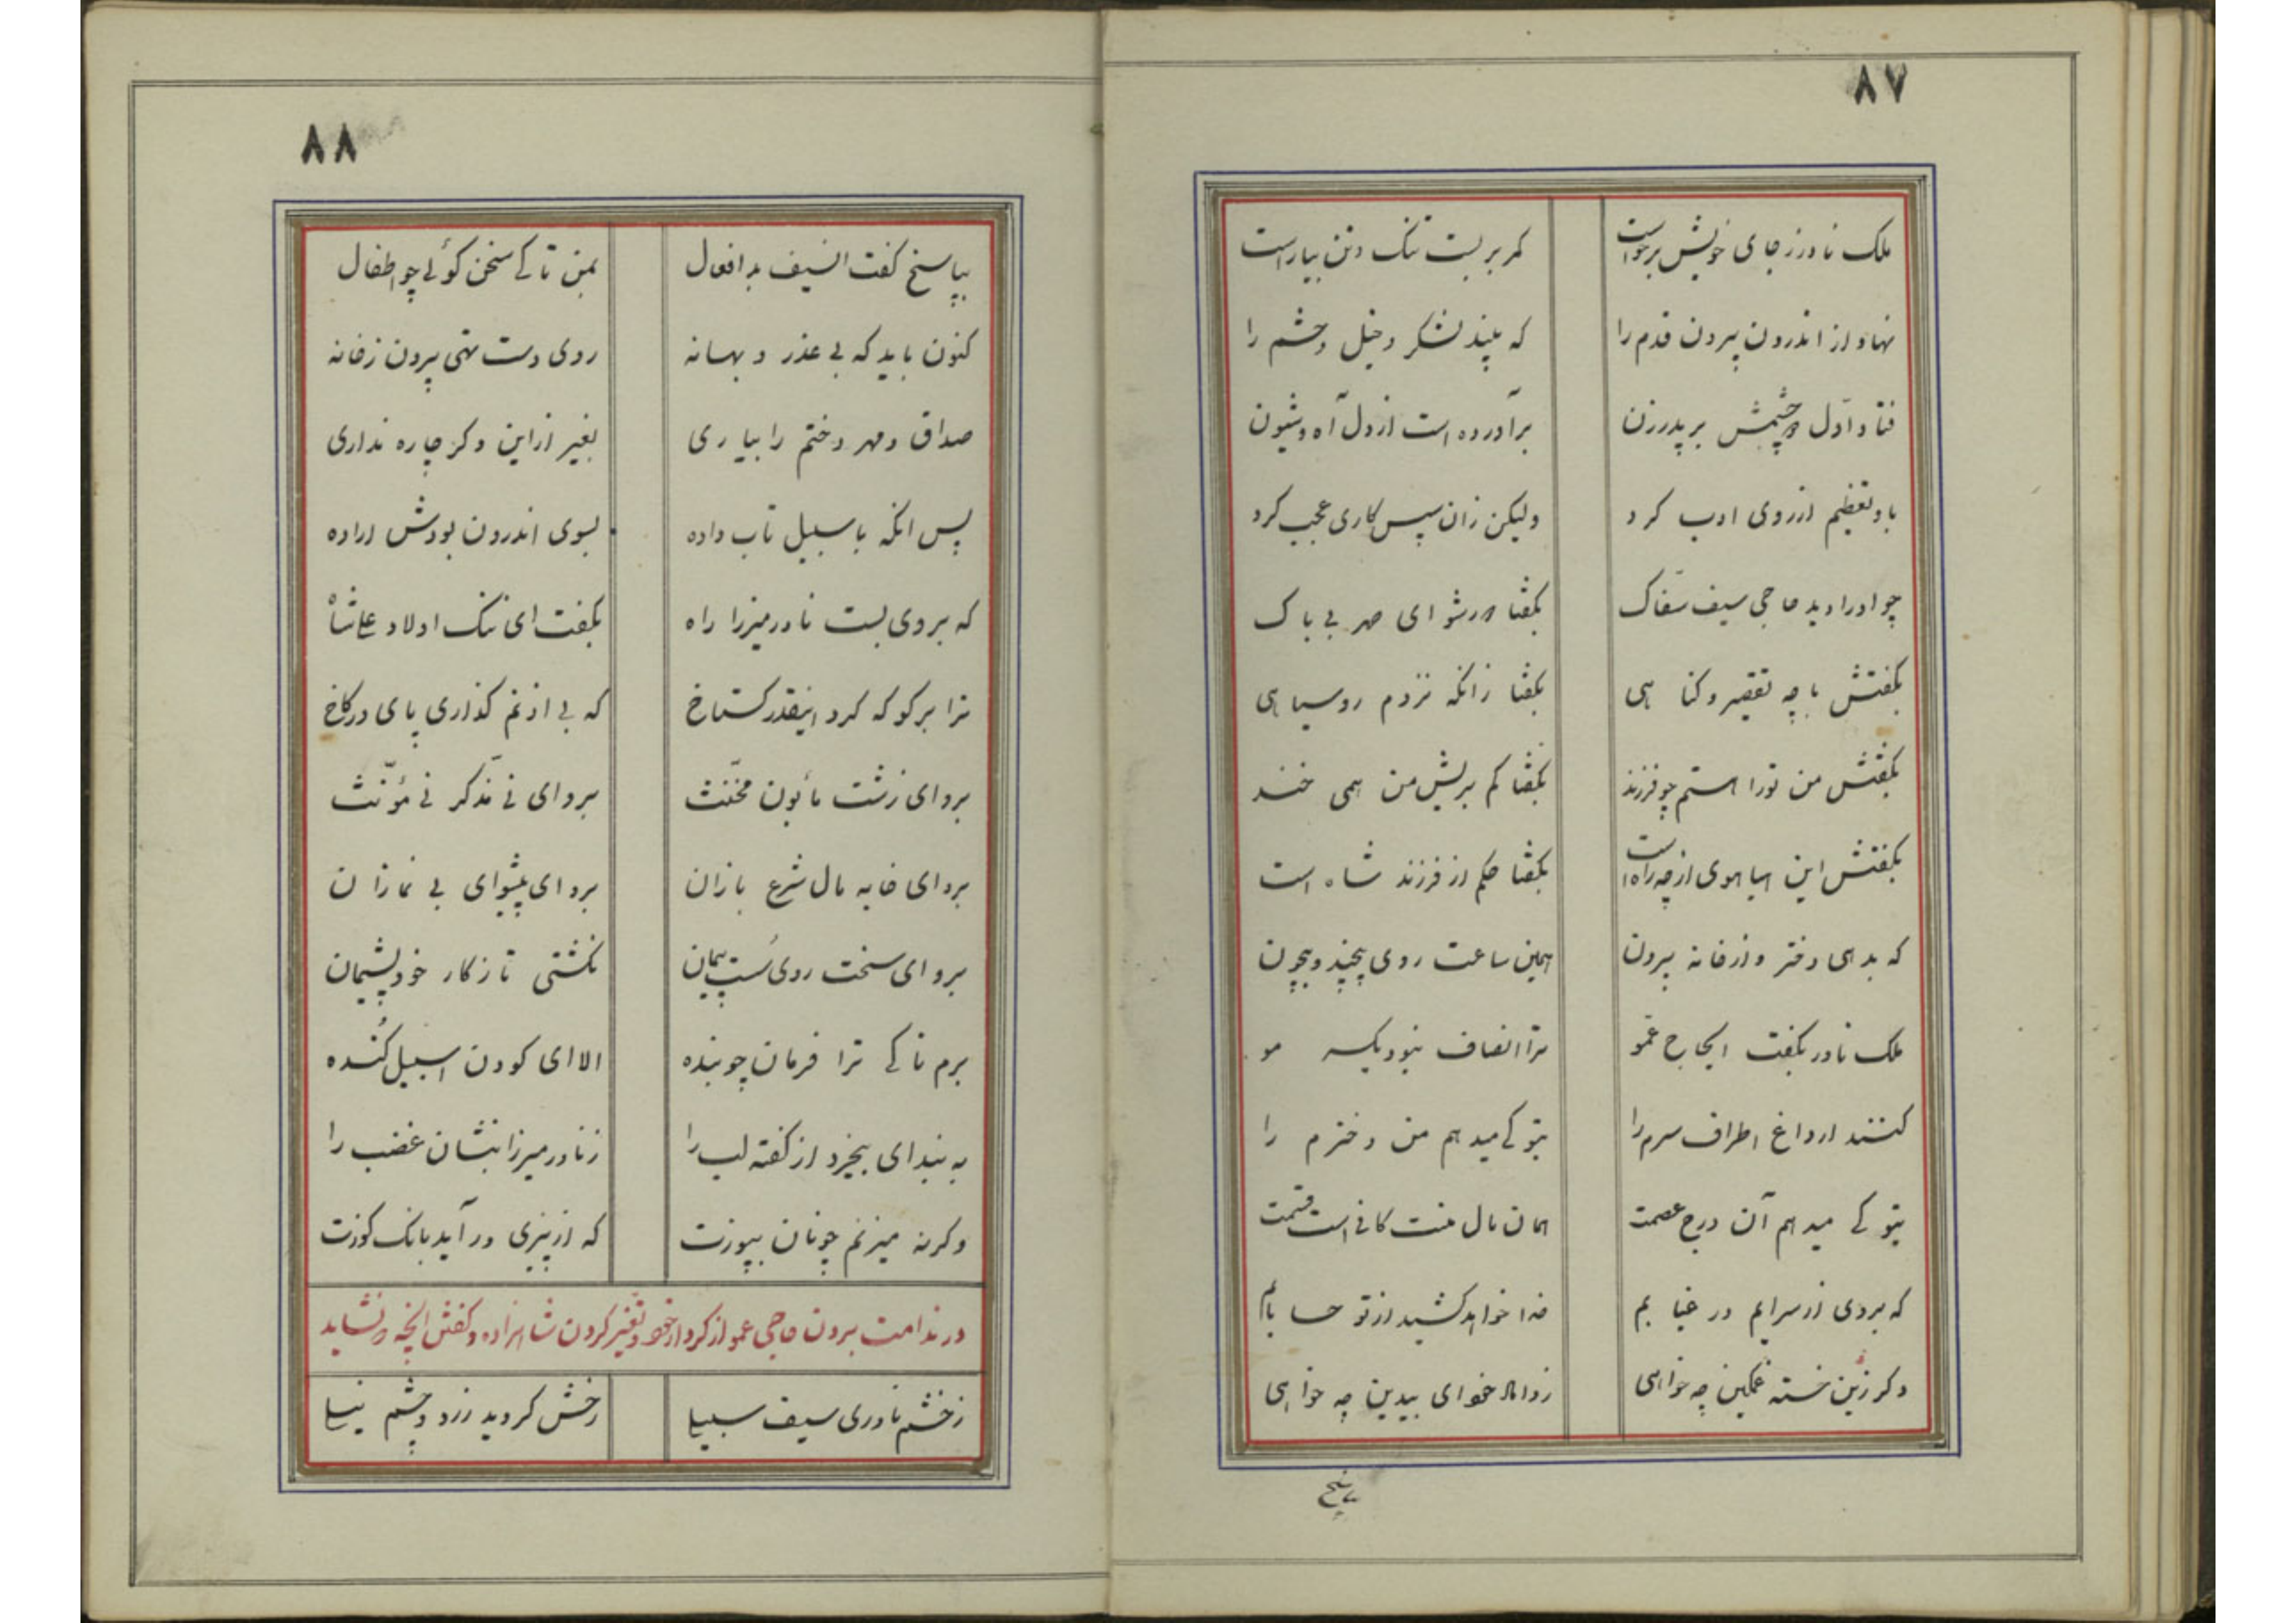 ۸۷
ملک نادر ز جای خویش برخواست کمر بر بست تنک و تن بیاراست
نهاد از اندرون بیرون قدم را که بیند لشکر و خیل و حشم را
فتاد اول دو چشمش بر پدرزن برآورده است از دل آه و شیون
باو تعظیم از روی ادب کرد ولیکن زان سپس کاری عجب کرد
چو او را دید حاجی سیف سفاک بگفتا دور شو ای صهر بی باک
بگفتش با چه تقصیر و کناهی بگفتا زانکه نزدم روسیاهی
بگفتش من تورا هستم چو فرزند بگفتا کم بریش من همی خند
بگفتش این هیاهوی از چه راه است بگفتا حکم از فرزند شاه است
که بدهی دختر و از خانه بیرون همین ساعت روی بیچند و بیچون
ملک نادر بگفت ایحاج عمو ترا انصاف نبود یکسر مو
کنند ار داغ اطراف سرم را بتو کی میدهم من دخترم را
بتو کی میدهم آن درج عصمت همان مال منت کافی است قسمت
که بردی از سرایم در غیابم خدا خواهد کشید از تو حسابم
دکر زین خسته غمگین چه خواهی ز داماد خود ای بیدین چه خواهی
پاسخ
۸۸
بپاسخ گفت السیف بد افعال بمن تا کی سخن کوئی چو اطفال
کنون باید که بی عذر و بهانه روی دست تهی بیرون ز خانه
صداق و مهر دختم را بیاری بغیر از این دکر چاره نداری
پس انکه با سبیل تاب داده بسوی اندرون بودش اراده
که بر وی بست نادر میرزا راه بگفت ای ننک اولاد علیشاه
ترا برکو که کرد اینقدر کستاخ که بی اذنم کذاری پای در کاخ
برو ای زشت مأبون مخنث برو ای نی مذکر نی مؤنث
برو ای خایه مال شرع بازان برو ای پیشوای بی نمازان
برو ای سخت روی سست پیمان نکشتی تا ز کار خود پشیمان
برم تا کی ترا فرمان چو بنده الا ای کودن اسبیل کنده
به بند ای بیخرد از کفته لب را ز نادر میرزا بنشان غضب را
وکرنه میزنم چونان بپوزت که از پیزی در آید بانک کوزت
در ندامت بردن حاجی عمو از کرد از خود و تغیر کردن شاهزاده و کفتن آنچه نشاید
ز خشم نادری سیف سبیا رخش کردید زرد و چشم